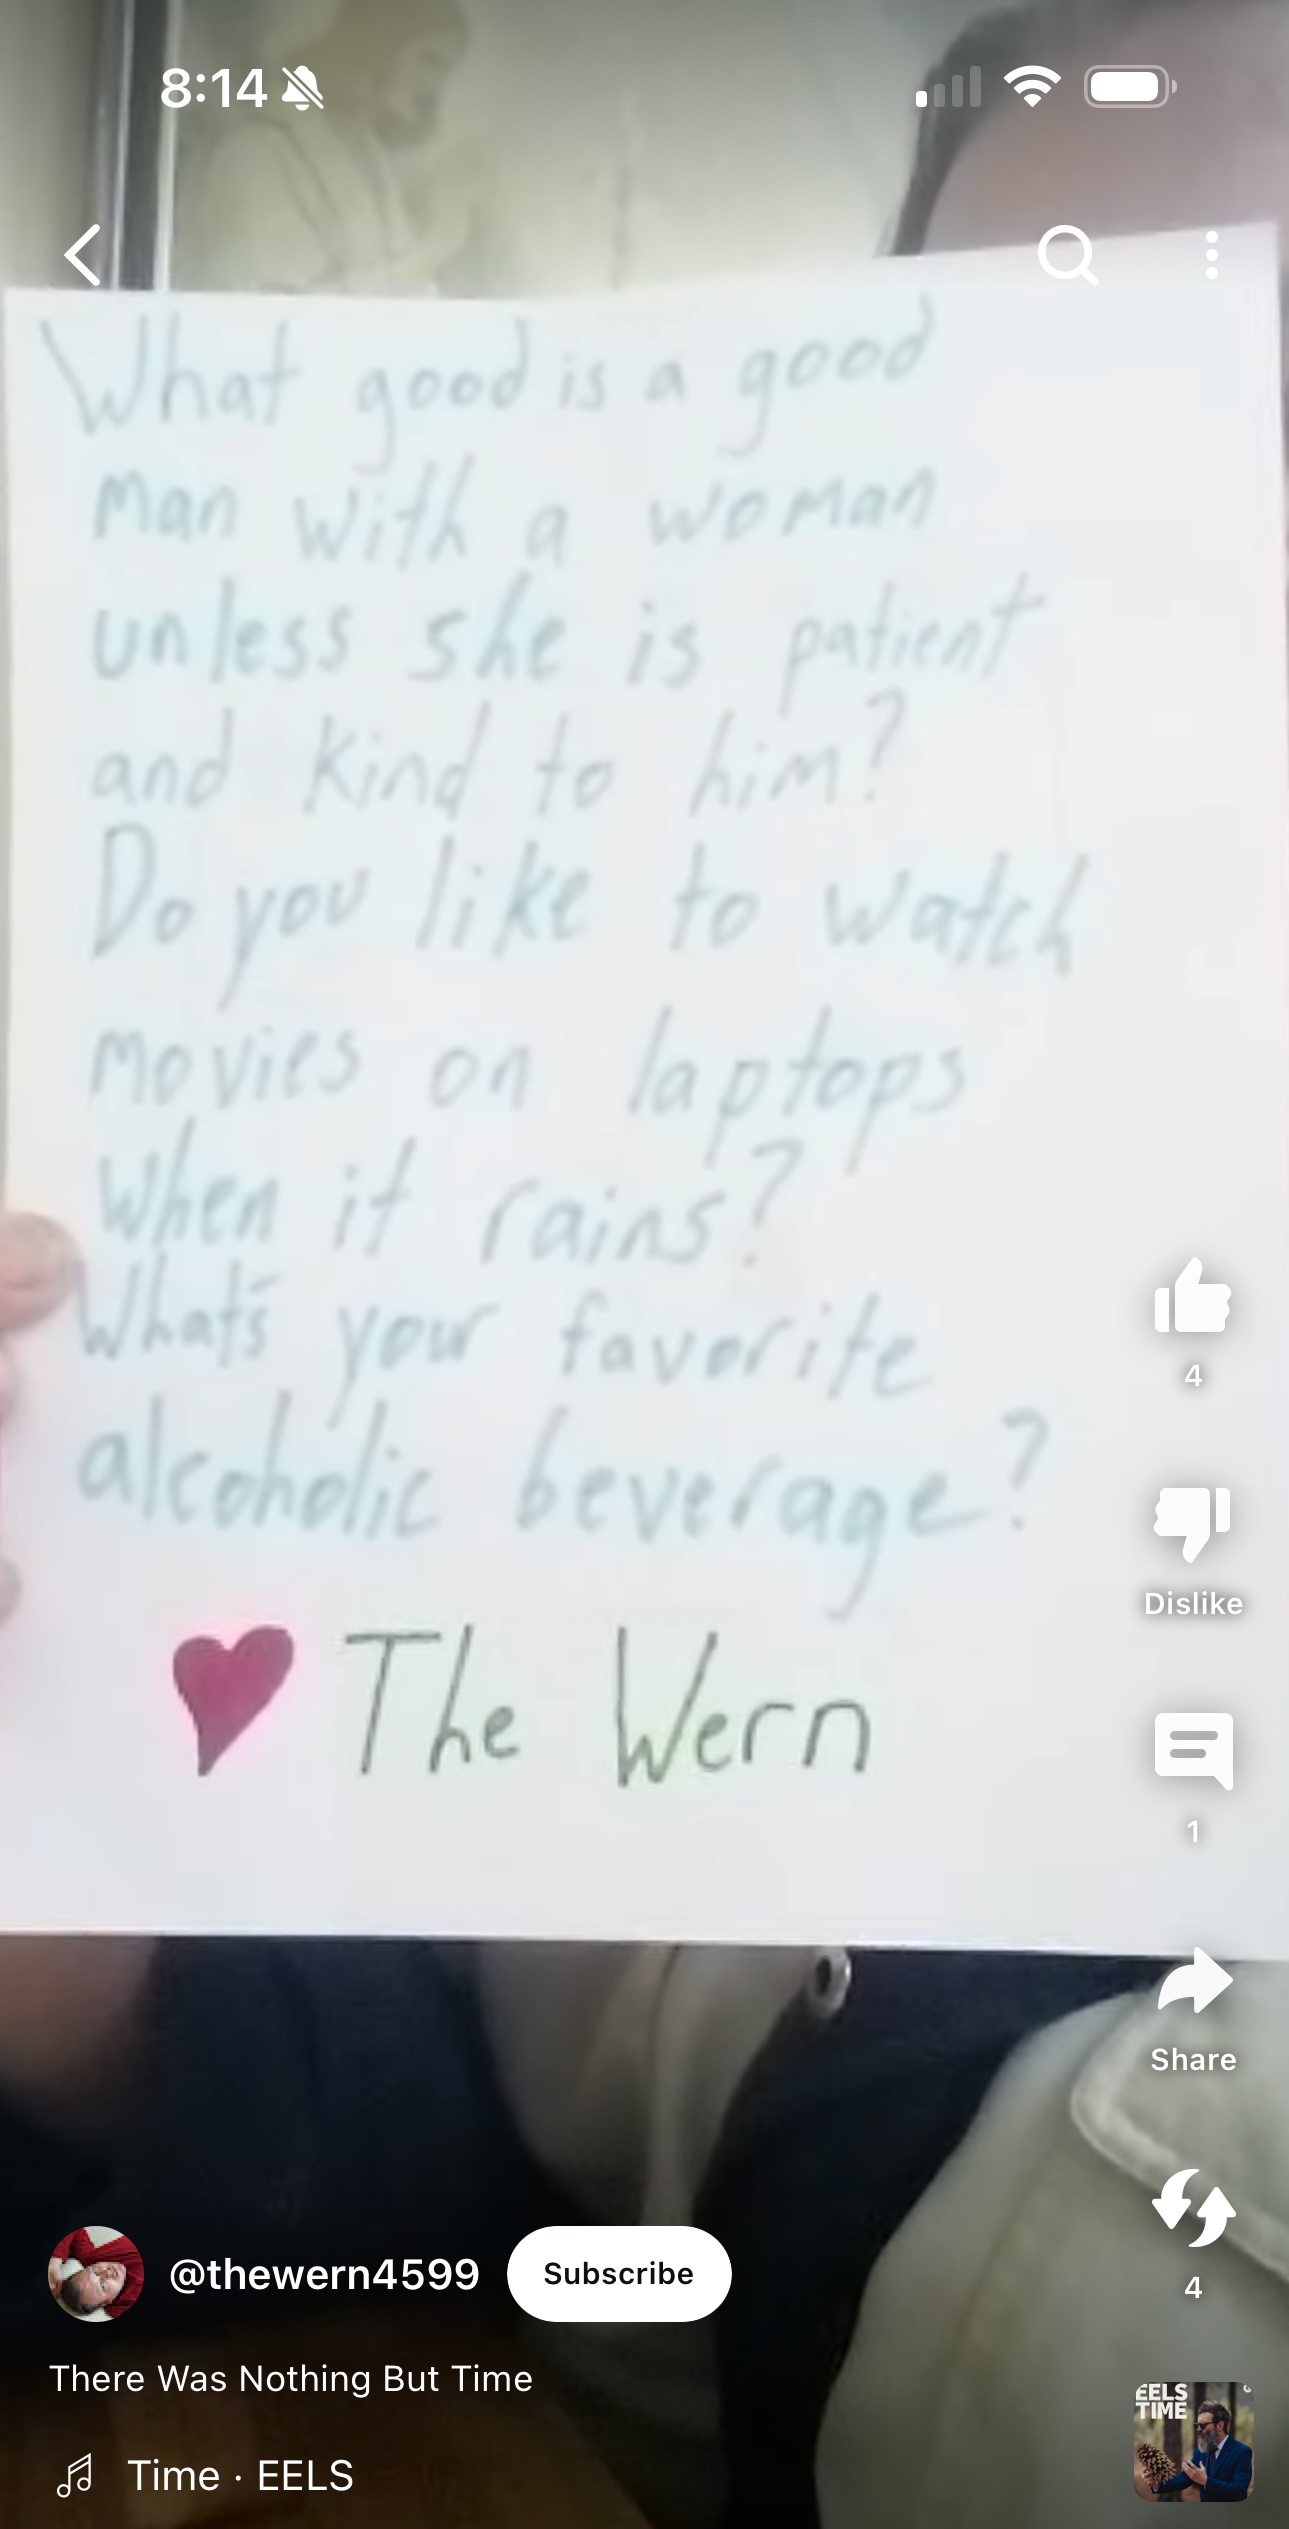 8:14
What good is a good
man with a woman
unless she is patient
and kind to him?
Do you like to watch
movies on laptops
when it rains?
What's your favorite
alcoholic beverage?
♥ The Wern
4
Dislike
1
Share
4
@thewern4599
Subscribe
There Was Nothing But Time
Time · EELS
EELS
TIME